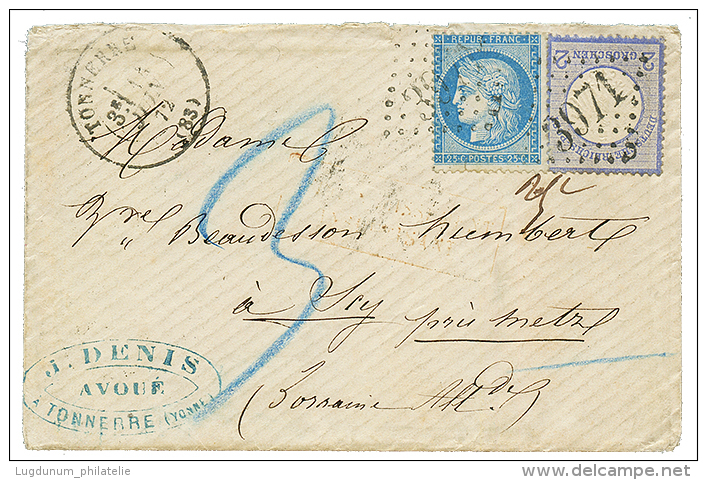 TONNERRE
35
JUIN
72
(83)
REPUB. FRANC.
25·C·POSTES·25·C
2 GROSCHEN 2
3971
Madame
Vve Beaudesson humbert
à Scy près metz
(Lorraine Alle)
3
J. DENIS
AVOUÉ
A TONNERRE (YONNE)
Lugdunum_philatelie
© delcampe.net